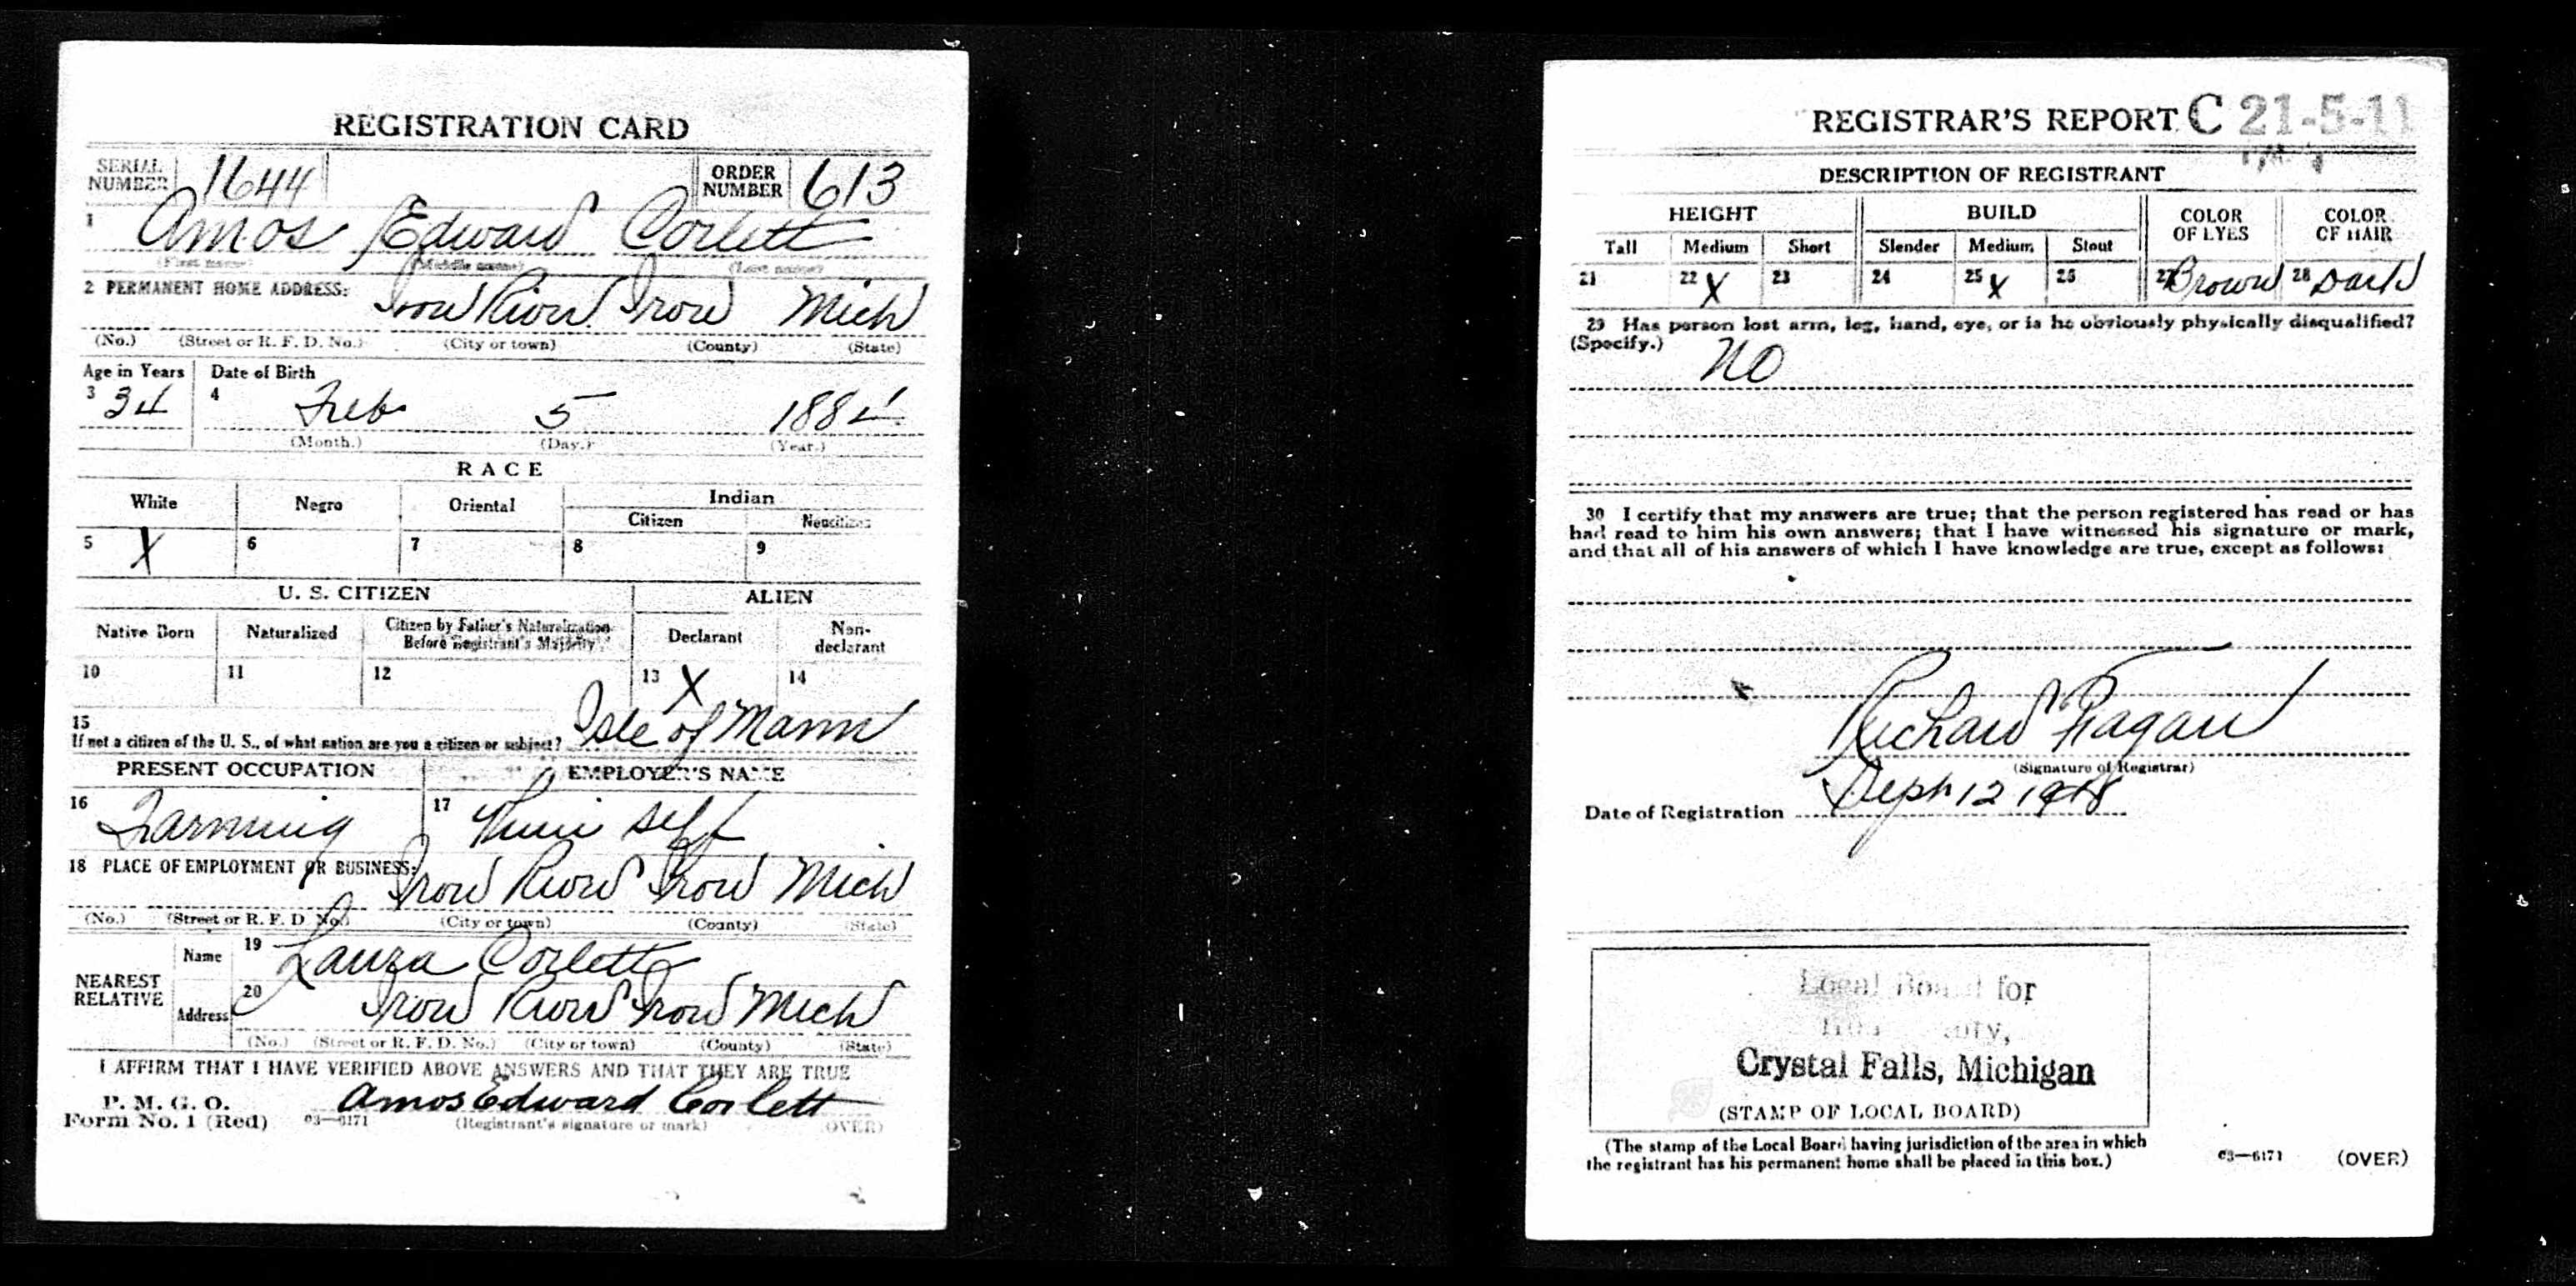 REGISTRATION CARD
SERIAL NUMBER 1644 ORDER NUMBER 613
1 Amos Edward Corlett
(First name) (Middle name) (Last name)
2 PERMANENT HOME ADDRESS: Iron River Iron Mich
(No.) (Street or R. F. D. No.) (City or town) (County) (State)
Age in Years Date of Birth
3 34 4 Feb 5 1884
(Month.) (Day.) (Year.)
RACE
White Negro Oriental Indian
Citizen Noncitizen
5 X 6 7 8 9
U. S. CITIZEN ALIEN
Native Born Naturalized Citizen by Father's Naturalization Before Registrant's Majority Declarant Non-declarant
10 11 12 13 X 14
15 Isle of Mann
If not a citizen of the U. S., of what nation are you a citizen or subject?
PRESENT OCCUPATION EMPLOYER'S NAME
16 Farming 17 Him self
18 PLACE OF EMPLOYMENT OR BUSINESS: Iron River Iron Mich
(No.) (Street or R. F. D. No.) (City or town) (County) (State)
NEAREST RELATIVE
Name 19 Laura Corlett
Address 20 Iron River Iron Mich
(No.) (Street or R. F. D. No.) (City or town) (County) (State)
I AFFIRM THAT I HAVE VERIFIED ABOVE ANSWERS AND THAT THEY ARE TRUE
P. M. G. O.
Form No. 1 (Red) 03—6171 Amos Edward Corlett
(Registrant's signature or mark) (OVER)
REGISTRAR'S REPORT C 21-5-11
DESCRIPTION OF REGISTRANT
HEIGHT BUILD COLOR OF EYES COLOR OF HAIR
Tall Medium Short Slender Medium Stout
21 22 X 23 24 25 X 26 27 Brown 28 Dark
29 Has person lost arm, leg, hand, eye, or is he obviously physically disqualified?
(Specify.) NO
30 I certify that my answers are true; that the person registered has read or has
had read to him his own answers; that I have witnessed his signature or mark,
and that all of his answers of which I have knowledge are true, except as follows:
Richard Fagan
(Signature of Registrar)
Date of Registration Sept 12 1918
Local Board for
Iron County,
Crystal Falls, Michigan
(STAMP OF LOCAL BOARD)
(The stamp of the Local Board having jurisdiction of the area in which
the registrant has his permanent home shall be placed in this box.)
03—6171 (OVER)